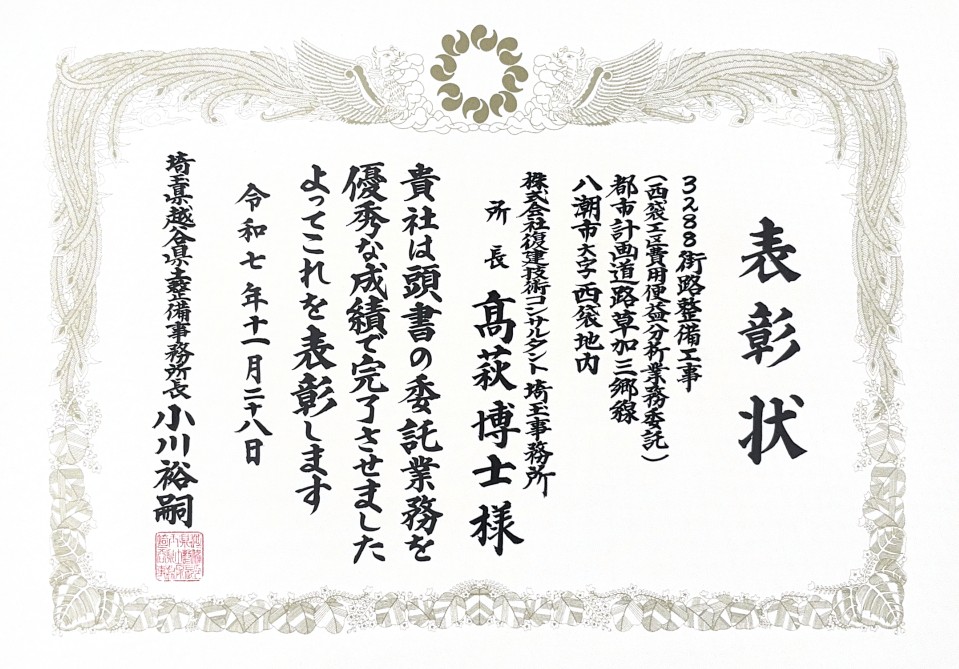 表彰状
3288街路整備工事
(西袋工区費用便益分析業務委託)
都市計画道路草加三郷線
八潮市大字西袋地内
株式会社復建技術コンサルタント埼玉事務所
所長 髙萩博士様
貴社は頭書の委託業務を
優秀な成績で完了させました
よってこれを表彰します
令和七年十一月二十八日
埼玉県越谷県土整備事務所長 小川裕嗣